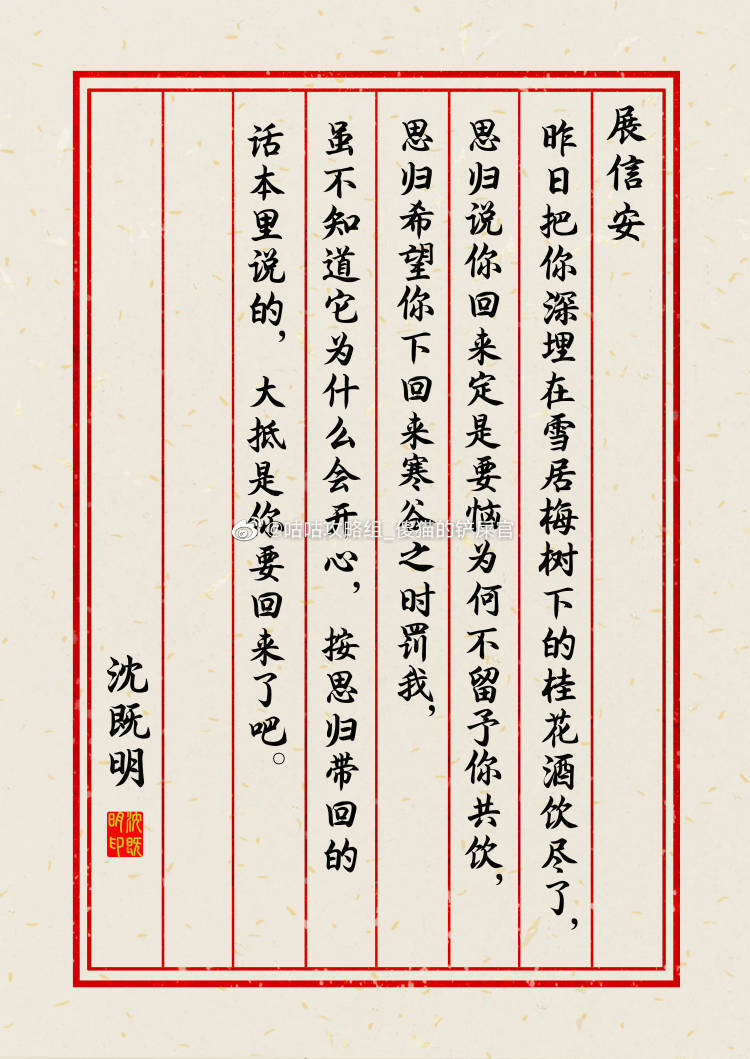 展信安
昨日把你深埋在雪居梅树下的桂花酒饮尽了，
思归说你回来定是要恼为何不留予你共饮，
思归希望你下回来寒谷之时罚我，
虽不知道它为什么会开心，按思归带回的
话本里说的，大抵是你要回来了吧。
沈既明
沈既明印
@咕咕攻略组_傻猫的铲屎官